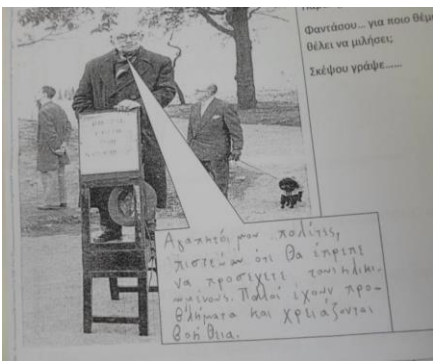 Φαντάσου... για ποιο θέμ
θέλει να μιλήσει;
Σκέψου γράψε......
Αγαπητοί μου πολίτες,
πιστεύω ότι θα έπρεπε
να προσέχετε τους ηλικι-
ωμένους. Πολλοί έχουν προ-
βλήματα και χρειάζονται
βοήθεια.